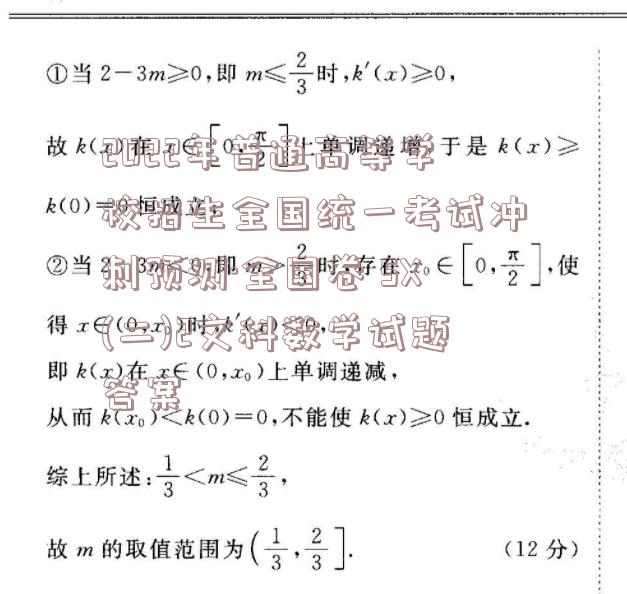 ①当 2-3m≥0,即 m≤2/3时,k′(x)≥0,
故 k(x)在 x∈[0,π/2]上单调递增,于是 k(x)≥
k(0)=0恒成立;
②当 2-3m<0,即 m>2/3时,存在 x₀∈[0,π/2],使
得 x∈(0,x₀)时,k′(x)≤0,
即 k(x)在 x∈(0,x₀)上单调递减,
从而 k(x₀)<k(0)=0,不能使 k(x)≥0 恒成立.
综上所述:1/3<m≤2/3,
故 m 的取值范围为(1/3,2/3]. (12 分)
2022年普通高等学
校招生全国统一考试冲
刺预测 全国卷 YX
(二)2文科数学试题
答案